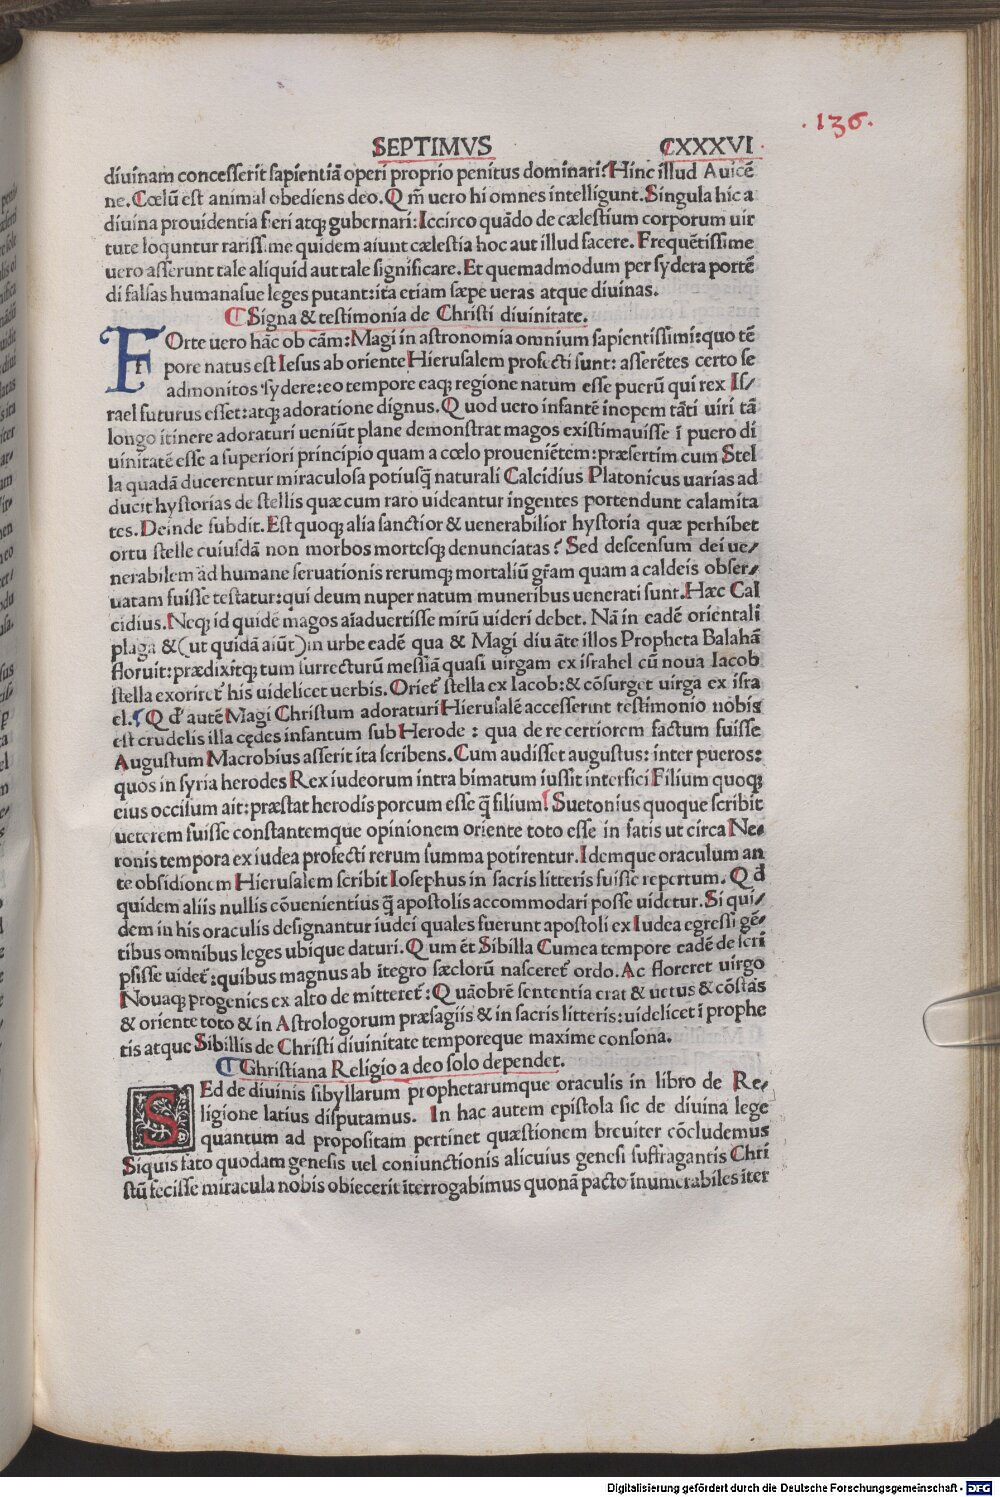 .136.
SEPTIMVS CXXXVI
diuinam concesserit sapientiã operi proprio penitus dominari? Hinc illud Auicẽ
ne. Cœlũ est animal obediens deo. Q m̃ uero hi omnes intelligunt. Singula hic a
diuina prouidentia fieri atq; gubernari: Iccirco quãdo de cælestium corporum uir
tute loquntur rarissime quidem aiunt cælestia hoc aut illud facere. Frequẽtissime
uero asserunt tale aliquid aut tale significare. Et quemadmodum per sydera portẽ
di falsas humanasue leges putant: ita etiam sæpe ueras atque diuinas.
¶ Signa & testimonia de Christi diuinitate.
FOrte uero hãc ob cãm: Magi in astronomia omnium sapientissimi: quo tẽ
pore natus est Iesus ab oriente Hierusalem profecti sunt: asserẽtes certo se
admonitos sydere: eo tempore eaq; regione natum esse puerũ qui rex Is/
rael futurus esset: atq; adoratione dignus. Q uod uero infantẽ inopem tãti uiri tã
longo itinere adoraturi ueniũt plane demonstrat magos existimauisse ĩ puero di
uinitatẽ esse a superiori principio quam a cœlo proueniẽtem: præsertim cum Stel
la quadã ducerentur miraculosa potiusq̃ naturali Calcidius Platonicus uarias ad
ducit hystorias de stellis quæ cum raro uideantur ingentes portendunt calamita
tes. Deinde subdit. Est quoq; alia sanctior & uenerabilior hystoria quæ perhibet
ortu stelle cuiusdã non morbos mortesq; denunciatas? Sed descensum dei ue/
nerabilem ad humane seruationis rerumq; mortaliũ gr̃am quam a caldeis obser/
uatam fuisse testatur: qui deum nuper natum muneribus uenerati sunt. Hæc Cal
cidius. Neq; id quidẽ magos aĩaduertisse mirũ uideri debet. Nã in eadẽ orientali
plaga &(ut quidã aiũt)in urbe eadẽ qua & Magi diu ãte illos Propheta Balahã
floruit: prædixitq; tum surrecturũ messiã quasi uirgam ex israhel cũ noua Iacob
stella exoriret᷑ his uidelicet uerbis. Oriet᷑ stella ex Iacob: & cõsurget uirga ex isra
el. ¶ Q d̃ autẽ Magi Christum adoraturi Hierusalẽ accesserint testimonio nobis
est crudelis illa cędes infantum sub Herode : qua de re certiorem factum fuisse
Augustum Macrobius asserit ita scribens. Cum audisset augustus: inter pueros:
quos in syria herodes Rex iudeorum intra bimatum iussit interfici Filium quoq;
eius occisum ait: præstat herodis porcum esse q̃ filium! Suetonius quoque scribit
ueterem fuisse constantemque opinionem oriente toto esse in fatis ut circa Ne/
ronis tempora ex iudea profecti rerum summa potirentur. Idemque oraculum an
te obsidionem Hierusalem scribit Iosephus in sacris litteris fuisse repertum. Q d̃
quidem aliis nullis cõuenientius q̃ apostolis accommodari posse uidetur. Si qui/
dem in his oraculis designantur iudei quales fuerunt apostoli ex Iudea egressi gẽ/
tibus omnibus leges ubique daturi. Q um ẽt Sibilla Cumea tempore eadẽ descri
psisse uidet᷑: quibus magnus ab ĩtegro sæclorũ nasceret᷑ ordo. Ac floreret uirgo
Nouaq; progenies ex alto demitteret᷑: Q uãobrẽ sententia erat & uetus & cõstãs
& oriente toto & in Astrologorum præsagiis & in sacris litteris: uidelicet ĩ prophe
tis atque Sibillis de Christi diuinitate temporeque maxime consona.
¶ Christiana Religio a deo solo dependet.
SEd de diuinis sibyllarum prophetarumque oraculis in libro de Re/
ligione latius disputamus. In hac autem epistola sic de diuina lege
quantum ad propositam pertinet quæstionem breuiter cõcludemus
Siquis fato quodam genesis uel coniunctionis alicuius genesi suffragantis Chri
stũ fecisse miracula nobis obiecerit iterrogabimus quonã pacto inumerabiles iter
Digitalisierung gefördert durch die Deutsche Forschungsgemeinschaft - DFG